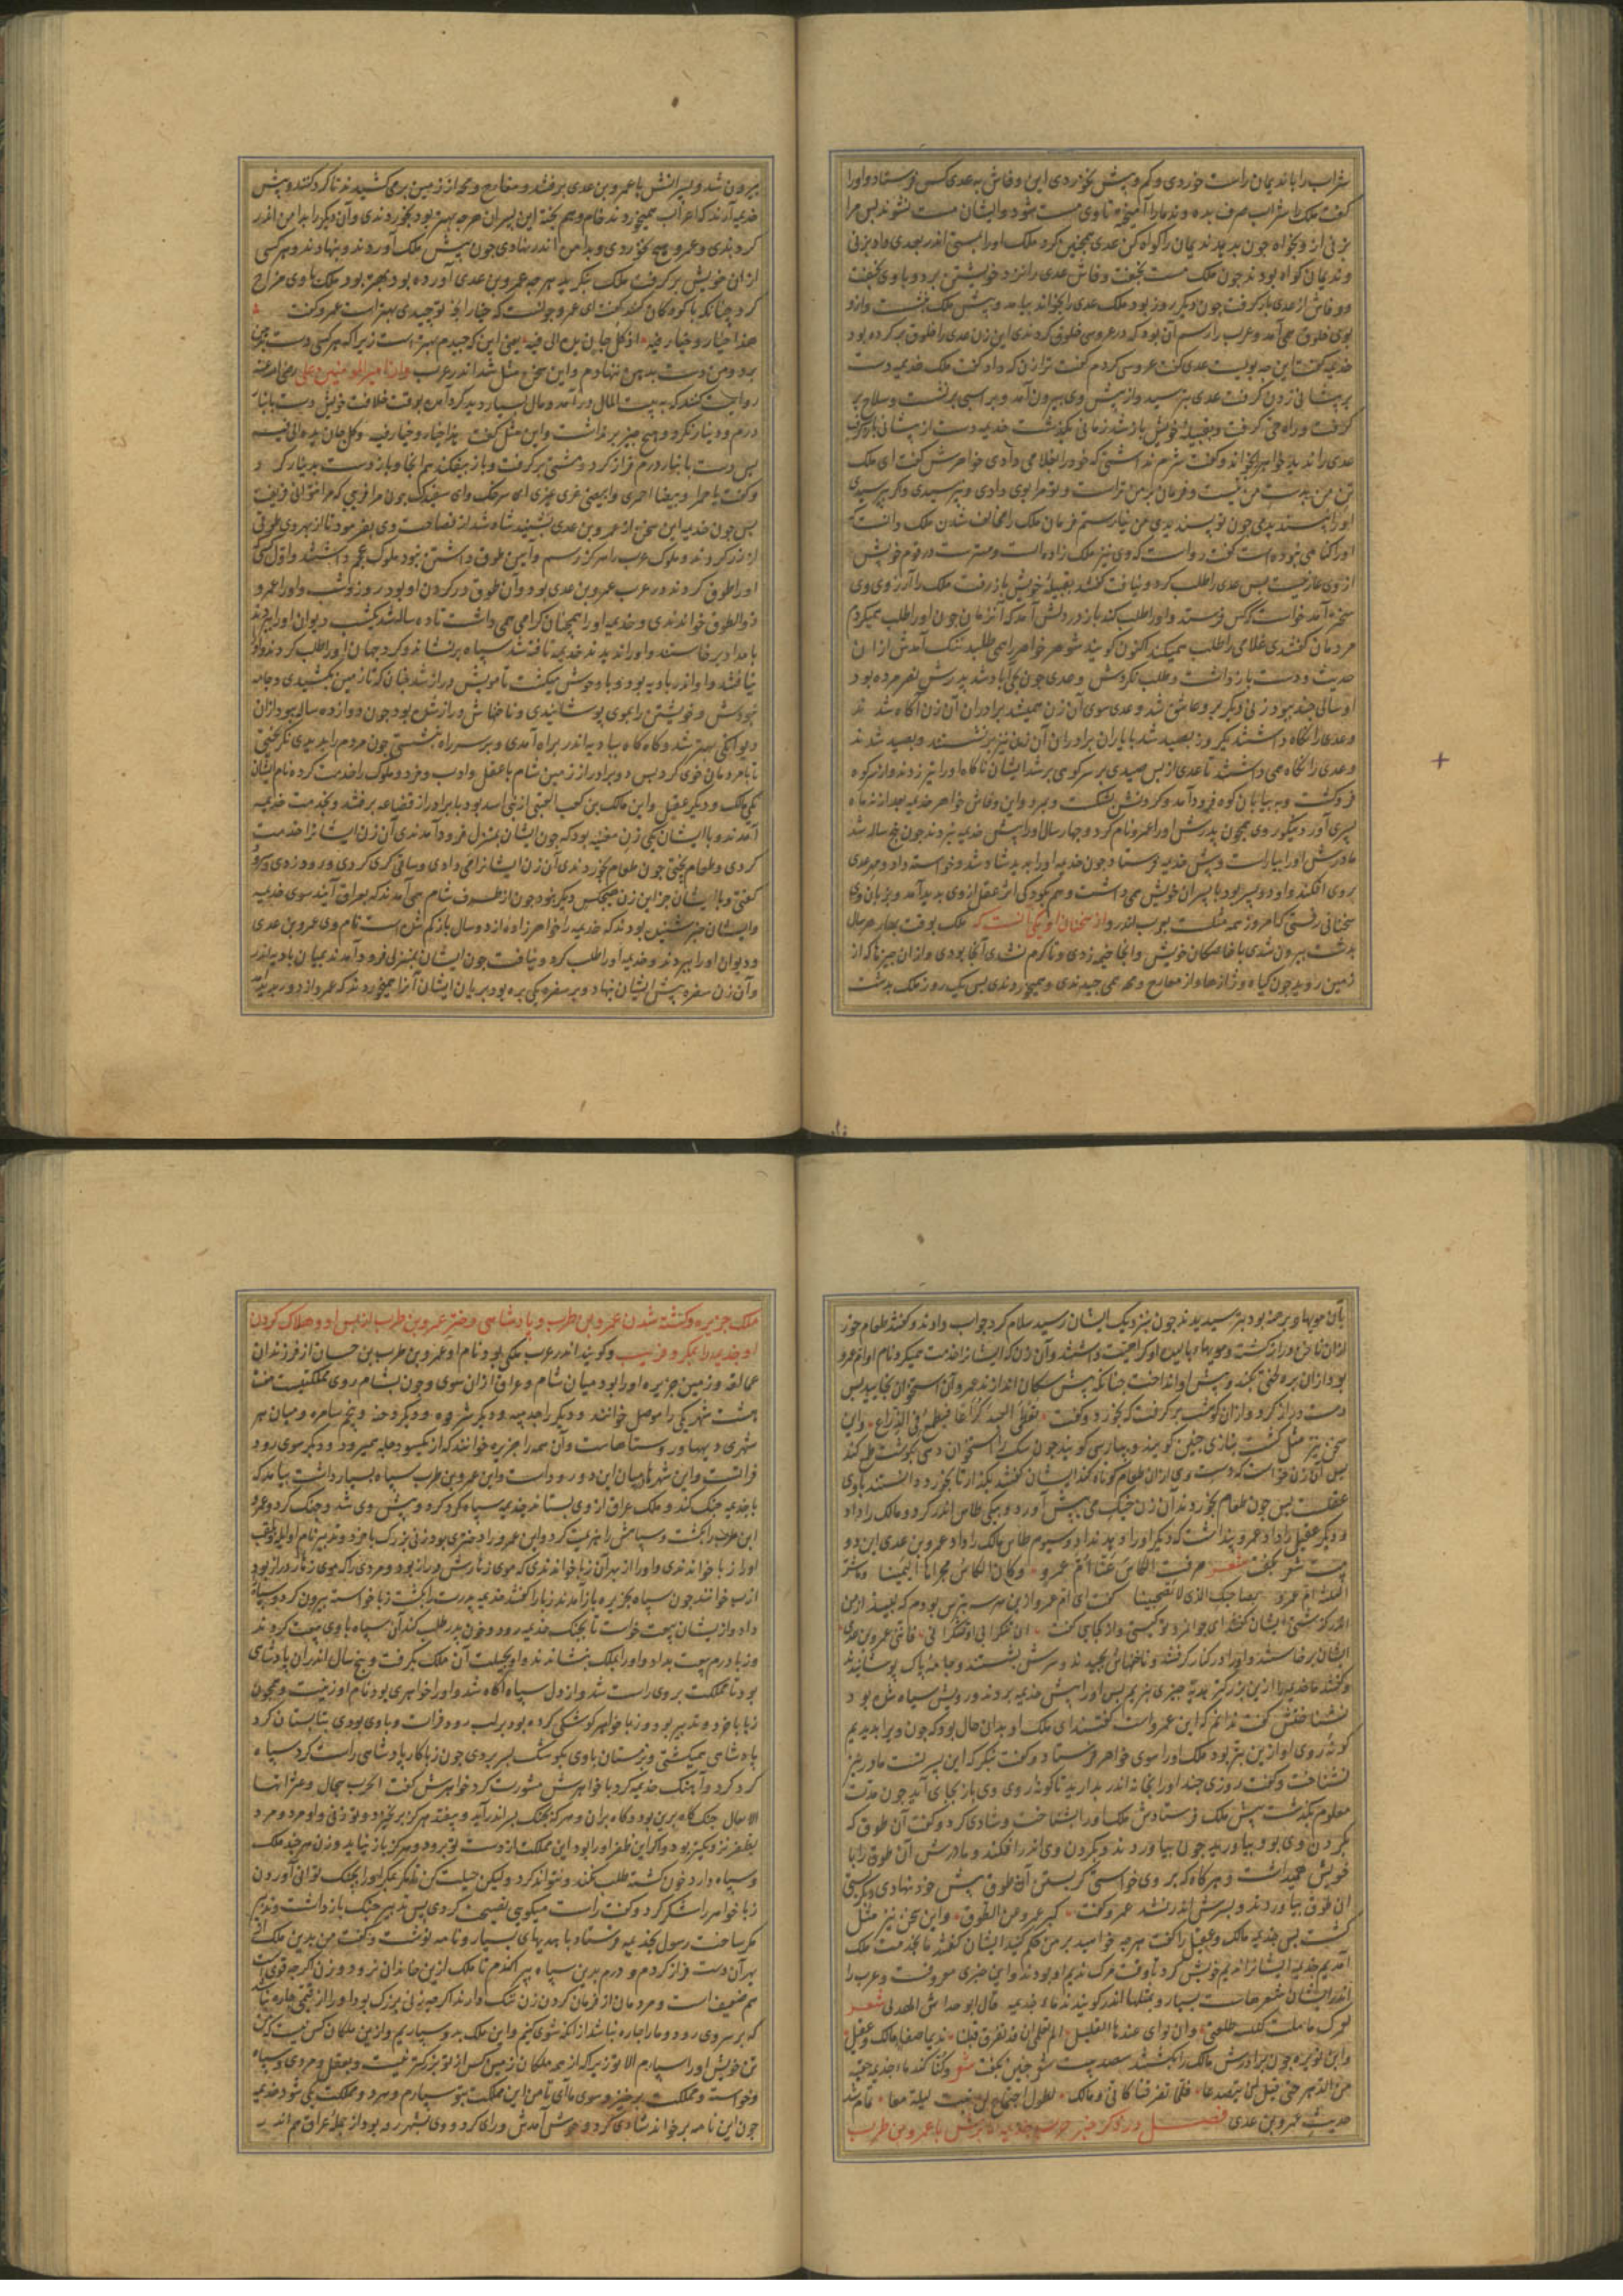 شراب را باندیمان راست خوردی و کم و بیش نخوردی این وفاش به عدی کس فرستاد و او را
گفت ملک را شراب صرف بده و ندما را آمیخته تا وی مست شود و ایشان مست نشوند پس مرا
بزنی از و بخواه چون بدهد ندیمان را کواه کن عدی همچنین کرد ملک او را بمستی اندر بعدی داد بزنی
و ندیمان کواه بودند چون ملک مست بخفت وفاش عدی را نزد خویشتن برد و با وی بخفت
و وفاش از عدی بار کرفت چون دیکر روز بود ملک عدی را بخواند بیامد و پیش ملک بنشست و از و
بوی خلوق می آمد و عرب را رسم آن بود که در عروسی خلوق کردندی این زن عدی را خلوق بر کرده بود
خذیمه گفت این چه بویست عدی گفت عروسی کردم گفت ترا زن که داد گفت ملک خذیمه دست
بر پیشانی زدن کرفت عدی بترسید و از پیش وی بیرون آمد و بر اسبی برنشست و سلاح بر
کرفت و راه حی کرفت و بقبیلهٔ خویش باز شد زمانی بگذشت خذیمه دست از پیشانی باز کرفت
عدی را ندید خواهر را بخواند و گفت شرم نداشتی که خود را بغلامی دادی خواهرش گفت ای ملک
تن من بدست من نیست و فرمان بر من تراست و تو مرا بوی دادی و نپرسیدی و کر پرسیدی
او را پسندیدمی چون تو پسندیدی من نیارستم فرمان ملک را مخالف شدن ملک دانست که
او را کناهی نبوده است گفت رواست که وی نیز ملک زاده است و مهترست در قوم خویش
از وی عار نیست پس عدی را طلب کرد و نیافت گفتند بقبیلهٔ خویش باز رفت ملک را آرزوی وی
سخن آمد خواست که کس فرستد و او را طلب کند باز در دلش آمد که آنزمان چون او را طلب میکردم
مردمان گفتندی غلامی را طلب میکند اکنون کویند شوهر خواهر را همی طلبد ننگ آمدش از ان
حدیث و دست باز داشت و طلب نکردش و عدی چون بحی اباد شد پدرش نصر مرده بود
او سالی چند ببود و زنی دیکر بر و عاشق شد و عدی سوی آن زن همیشد برادران آن زن آگاه شدند
و عدی را نکاه داشتند یکروز بصید شد با یاران برادران آن زن نیز برنشستند و بصید شدند
و عدی را نکاه می داشتند تا عدی از پس صیدی بر سر کوهی بر شد ایشان ناکاه او را تیر زدند و از سر کوه
فرو کشت و به بیابان کوه فرود آمد و کردنش بشکست و بمرد و این وفاش خواهر خذیمه بعد از نه ماه
پسری آورد نیکوروی همچون پدرش او را عمرو نام کرد و چهار سال او را پیش خذیمه نبردند چون پنج ساله شد
مادرش او را بیاراست و پیش خذیمه فرستاد چون خذیمه او را بدید شاد شد و خواسته داد و مهر عدی
بروی افکند و او دو پسر بود با پسران خویش می داشت و هم بکودکی اثر عقل از وی بدید آمد و بزبان وی
سخنانی رفتی که امروز همه مثلست بعرب اندر و از سخنان او یکی انست که ملک بوقت بهار هر سال
بدشت بیرون شدی با خاصکان خویش و انجا خیمه زدی و تا کرم نشدی آنجا بودی و از ان چیزها که از
زمین روید چون کیاه و ژاژها و از مغارج و همه می چیدندی و میخوردندی پس یک روز ملک بدشت
بیرون شد و پسرانش با عمرو بن عدی برفتند و مغارج و همه از زمین بر می کشیدند تا کرد کنند و پیش
خذیمه آرند که اعراب همیخوردند خام و هم پخته این پسران هر چه بهتر بود بخوردندی و آن دیکر را بدامن اندر
کردندی و عمرو هیچ نخوردی و بدامن اندر نهادی چون پیش ملک آوردند و بنهادند و هر کسی
از ان خویش بر کرفت ملک بنگرید هر چه عمرو بن عدی آورده بود بهتر بود ملک با وی مزاح
کرد چنانکه با کودکان کنند گفت ای عمرو چونست که خیارا بچه تو چیدی بهتر است عمرو گفت
هذا خیار و خیاره فیه اذ کل جان یده الی فیه یعنی این که چیدم بهتر است زیرا که هر کسی دست بدهن
برد و من دست بدهن ننهادم و این سخن مثل شد اندر عرب و از امیر المومنین علی رضی الله عنه
روایت کنند که به بیت المال در آمد و مال بسیار دید کرد آمده بوقت خلافت خویش دست بانبار
درم و دینار نکرد و هیچ چیز بر نداشت و این مثل گفت هذا خیار و خیاره فیه و کل جان یده الی فیه
پس دست بانبار درم فراز کرد و مشتی بر کرفت و باز بیفکند هم انجا و باز دست بدینار کرد
و گفت یا حمرا و یا بیضا احمری و ابیضی غری غیری ای سرخک و ای سفیدک چون مرا فریبی که مرا نتوانی فریفت
پس چون خذیمه این سخن از عمرو بن عدی بشنید شاد شد از فصاحت وی بفرمود تا از بهر وی طوقی
از زر کردند و ملوک عرب را هرکز رسم و آیین طوق داشتن نبود ملوک عجم داشتند و اول کسی که
او را طوق کردند در عرب عمرو بن عدی بود و آن طوق در کردن او بود روز و شب و او را عمرو
ذوالطوق خواندندی و خذیمه او را همچنان کرامی همی داشت تا ده ساله شد یکشب دیوان او را ببردند
بامداد برخاستند و او را ندیدند خذیمه تافته شد سپاه بر نشاند و کرد جهان او را طلب کردند و
نیافتند و او اندر بادیه بود و با وحوش میکشت تا مویش دراز شد چنان که تا زمین بکشیدی و جامه
نبودش و خویشتن را بموی پوشانیدی و ناخنهاش دراز شده بود چون دوازده ساله ببود از ان
دیوانکی بهتر شد و کاه کاه ببادیه اندر براه آمدی و بر سر راه بنشستی چون مردم را بدیدی نکریختی
تا با مردمان خوی کرد پس دو برادر از زمین شام با عقل و ادب و خرد و ملوک را خدمت کرده نام ایشان
یکی مالک و دیکر عقیل و این مالک بن کعب البجنی از بنی اسد بود با برادر از قضاعه برفتند و بخدمت خذیمه
آمدند و با ایشان یکی زن مغنیه بود که چون ایشان بمنزل فرود آمدندی آن زن ایشانرا خدمت
کردی و طعام پختی چون طعام بخوردندی آن زن ایشانرا می دادی و ساقی کری کردی و رود زدی و سرود
گفتی و با ایشان جز این زن هیچکس دیکر نبود چون از طرف شام همی آمدند که بعراق آیند سوی خذیمه
و ایشان خبر شنیده بودند که خذیمه را خواهر زادهٔ از ده سال باز کم شده است نام وی عمرو بن عدی
و دیوان او را ببردند و خذیمه او را طلب کرد و نیافت چون ایشان بمنزلی فرود آمدند بمیان بادیه اندر
و آن زن سفره پیش ایشان نهاد و بر سفره یکی بره بود بریان ایشان آنرا همیخوردند که عمرو از دور بدیدند
با آن مویها و برهنه بود بترسیدند چون بنزدیک ایشان رسید سلام کرد جواب دادند و گفتند طعام خور
بود از ان بره لختی بکند و پیش او انداخت چنانکه پیش سکان اندازند عمرو آن استخوان بخایید پس
دست دراز کرد و از ان کوشت بر کرفت که بخورد و گفت تعطی العبد کراعا فیطمع فی الذراع و این
سخن نیز مثل گشت بتازی چنین کویند و بپارسی کویند چون سک را استخوان دهی بکوشت طمع کند
پس آن زن خواست که دست وی از ان طعام کوتاه کند ایشان گفتند بگذار تا بخورد و دانستند با وی
عقلست پس چون طعام بخوردند آن زن خیک می پیش آورد و بیکی طاس اندر کرد و مالک را داد
و دیکر عقیل را داد عمرو پنداشت که دیکر او را دهد نداد و سیوم طاس مالک را داد عمرو بن عدی این دو
بیت شعر بگفت شعر صرفت الکاس عنا ام عمرو وکان الکاس مجراها الیمینا وما شر
الثلثة ام عمرو بصاحبک الذی لا تصبحینا گفت ای ام عمرو از این هر سه بترین بودم که بنبید از من
اندر گذشتی ایشان گفتند ای جوانمرد تو کیستی و از کجایی گفت ان تنکرانی او تنکرا نی فانی عمرو بن عدی
ایشان برخاستند و او را در کنار کرفتند و ناخنهاش بچیدند و سرش بشستند و جامهٔ پاک پوشانیدند
و گفتند ما خذیمه را از این بزرکتر هدیهٔ چیزی نبریم پس او را پیش خذیمه بردند و رویش سیاه شده بود
نشناختش گفت ندانم که این عمرو است گفتند ای ملک او بدان حال بود که چون ویرا بدیدیم
کونهٔ روی او از این بتر بود ملک او را سوی خواهر فرستاد و گفت بنگر که این پسر تست مادر نیز
نشناخت و گفت روزی چند او را بخانه اندر بدارید تا کونهٔ روی وی باز بجای آید چون مدت
معلوم بگذشت پیش ملک فرستادش ملک او را بشناخت و شادی کرد و گفت آن طوق که
بکردن وی بود بیاورید چون بیاوردند و بکردن وی اندر افکند و مادرش آن طوق را با
خویش همیداشت و هر کاه که بر وی خواستی کریستن آن طوق پیش خود نهادی و بکریستی
آن طوق بیاوردند و بسرش اندر نشد عمرو گفت کبر عمرو عن الطوق و این سخن نیز مثل
گشت پس خذیمه مالک و عقیل را گفت هر چه خواهید بر من حکم کنید ایشان گفتند ما بخدمت ملک
آمدیم خذیمه ایشانرا ندیم خویش کرد تا وقت مرک ندیم او بودند و این خبری معروفست و عرب را
اندر ایشان شعرهاست بسیار و مثلها اندر کویند ندماء خذیمه قال ابو خراش الهذلی شعر
لعمرک ما ملت کبیشه طلعتی وان ثوای عندها لقلیل الم تعلمی ان قد تفرق قبلنا ندیما صفا مالک وعقیل
و ابن نویره چون برادرش مالک را بکشتند بیت شعر چنین بگفت شعر وکنا کندماء جذیمه حقبه
من الدهر حتی قیل لن یتصدعا فلما تفرقنا کانی ومالک لطول اجتماع لم نبت لیلة معا تمام شد
حدیث عمرو بن عدی فصل در ذکر خبر حرب جذیمه الابرش با عمرو بن طرب
ملک جزیره و کشته شدن عمرو بن طرب و پادشاهی دختر عمرو بن طرب از پس او و هلاک کردن
او جذیمه را بمکر و فریب و کویند اندر عرب ملکی بود نام او عمرو بن طرب بن حسان از فرزندان
عمالقه و زمین جزیره او را بود میان شام و عراق از ان سوی و چون بشام روی مملکتیست
هشت شهر یکی را موصل خوانند و دیکر
شهری دیهها و روستاهاست و آن همه را جزیره خوانند که از یکسو دجله میرود و دیکر سوی رود
فراتست و این شهرها میان این دو رود است و این عمرو بن طرب سپاه بسیار داشت بیامد که
با جذیمه جنک کند و ملک عراق از وی بستاند جذیمه سپاه کرد کرد و پیش وی شد و جنک کرد و عمرو
ابن طرب را بکشت و سپاهش را هزیمت کرد و این عمرو را دختری بود زنی بزرک با خرد و تدبیر نام او لیلی و لقب
او را زبا خواندندی و او را از بهر آن زبا خواندندی که موی زهارش دراز بود و مردی را که موی زهار دراز بود
ازب خوانند چون سپاه بجزیره باز آمدند زبا را گفتند جذیمه پدرت را بکشت زبا خواسته بیرون کرد و سپاه را
داد و از یشان بیعت خواست تا بجنک جذیمه رود و خون پدر طلب کند آن سپاه با وی بیعت کردند
و زبا درم بیعت بداد و او را بملک بنشاندند و او بحیلت آن ملک بگرفت و پنج سال اندران پادشاهی
بود تا مملکت بر وی راست شد و از دل سپاه آگاه شد و او را خواهری بود نام او زینب و همچون
زبا با خرد و تدبیر بود و زبا خواهر را کوشکی کرده بود بر لب رود فرات و با وی بودی بتابستان کرد
پادشاهی میکشتی و زمستان با وی بکوشک بسر بردی چون زبا کار پادشاهی راست کرد سپاه
کرد کرد و آهنک جذیمه کرد با خواهرش مشورت کرد خواهرش گفت الحرب سجال و عثراتها
لا تقال جنک کاه برین بود و کاه بران و هر که بجنک بسر اندر آید و بیفتد هرکز بر نخیزد و تو زنی و او مرد و مرد
بظفر نزدیکتر بود و اکر این ظفر او را بود این مملکت از دست تو برود و هرکز باز نیاید و زن هر چند ملک
و سپاه دارد خون کشته طلب نکند و نتواند کرد ولیکن حیلت کن مگر بمکر او را بچنک توانی آوردن
زبا خواهر را شکر کرد و گفت راست میکویی نصیحت کردی پس تدبیر جنک بازداشت و تدبیر
مکر ساخت رسول بجذیمه فرستاد با هدیهای بسیار و نامه نوشت و گفت من بدین ملک از
بهر آن دست فراز کردم و درم بدین سپاه پراکندم تا ملک از این خاندان نرود و زن اگرچه قوی است
هم ضعیف است و مردمان از فرمان کردن زن ننک دارند اگرچه زنی بزرک بود او را از قیمی چاره نباشد
که بر سر وی رود و ما را چاره نباشد از آنکه شوی کنیم و این ملک بدو سپاریم و از این ملکان کس نیست که من
تن خویش او را سپارم الا تو زیرا که از همه ملکان زمین کس از تو بزرکتر نیست و بعقل و مردی و سپاه
و خواسته و مملکت برخیز و سوی ما آی تا من این مملکت بتو سپارم و هر دو مملکت یکی شود جذیمه
چون این نامه بر خواند شادی کرد و خوش آمدش و رای کرد و وی بشهر رقه بود از جمله عراق هم اندر